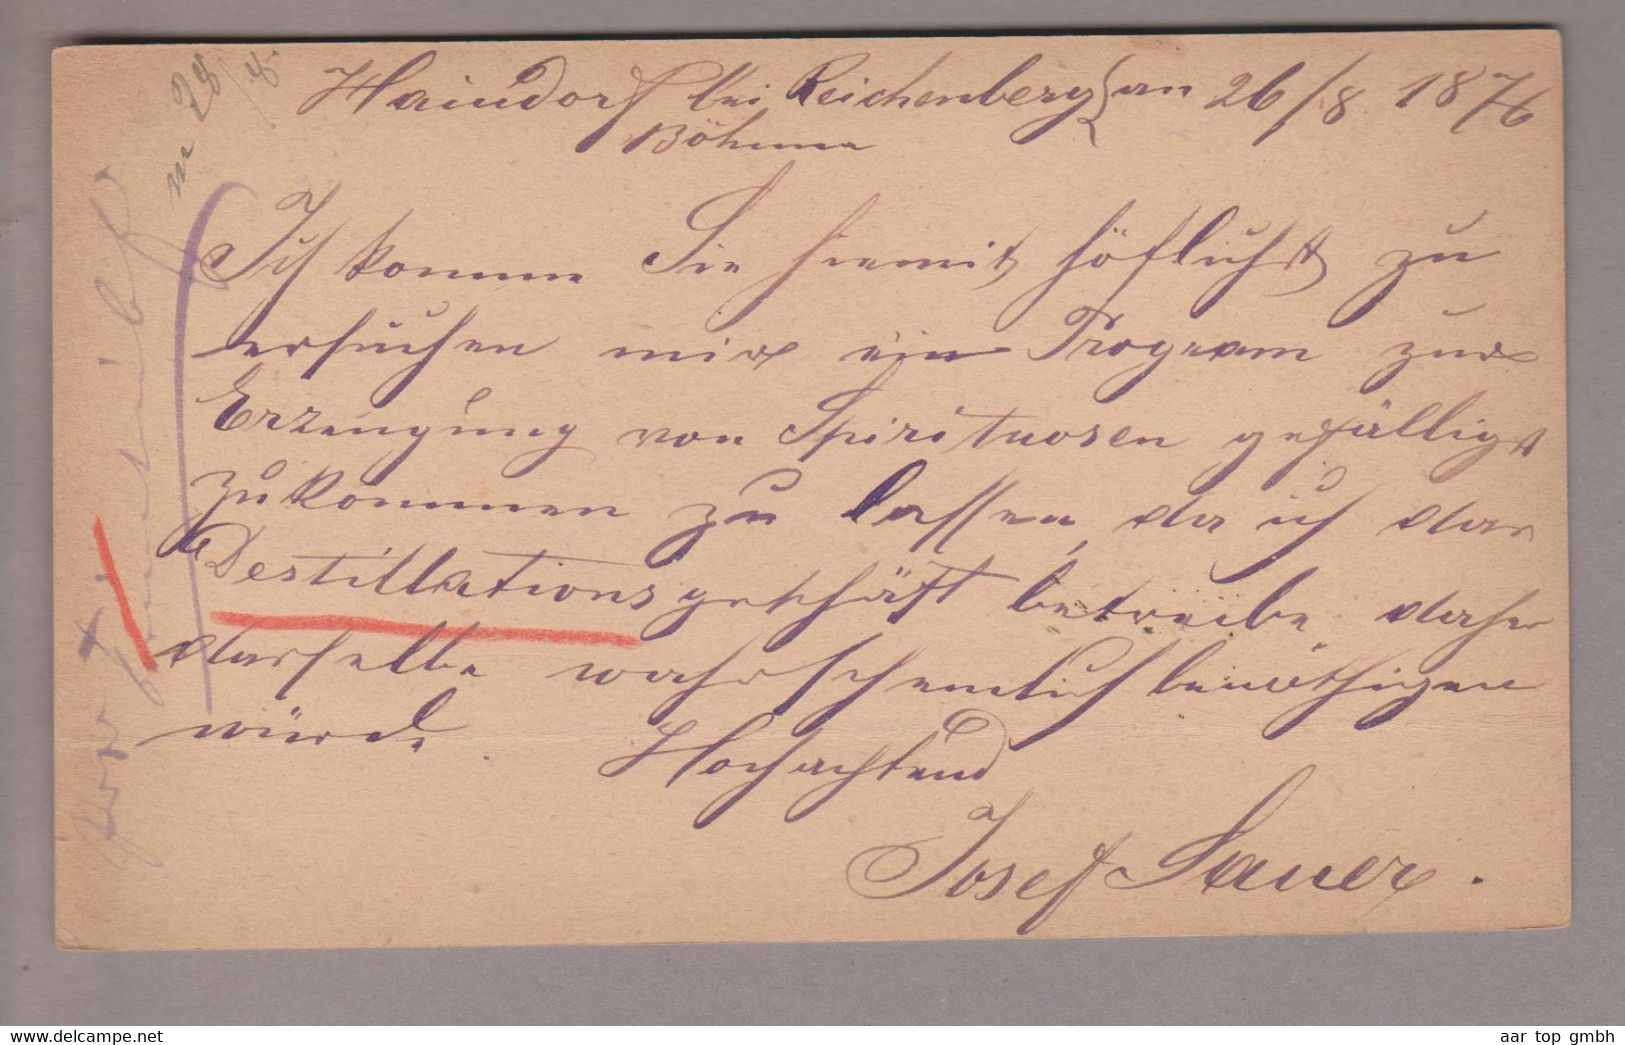 Haindorf bei Reichenberg an 26/8 1876
Böhmen
Ich komme Sie hiemit höflichst zu
ersuchen mir ein Program zur
Erzeugung von Spirituosen gefälligst
zukommen zu lassen, da ich das
Destillationsgeschäft betreibe, daher
dasselbe wahrscheinlich benöthigen
würde. Hochachtend
Josef Sauer.
28/8
aar top gmbh